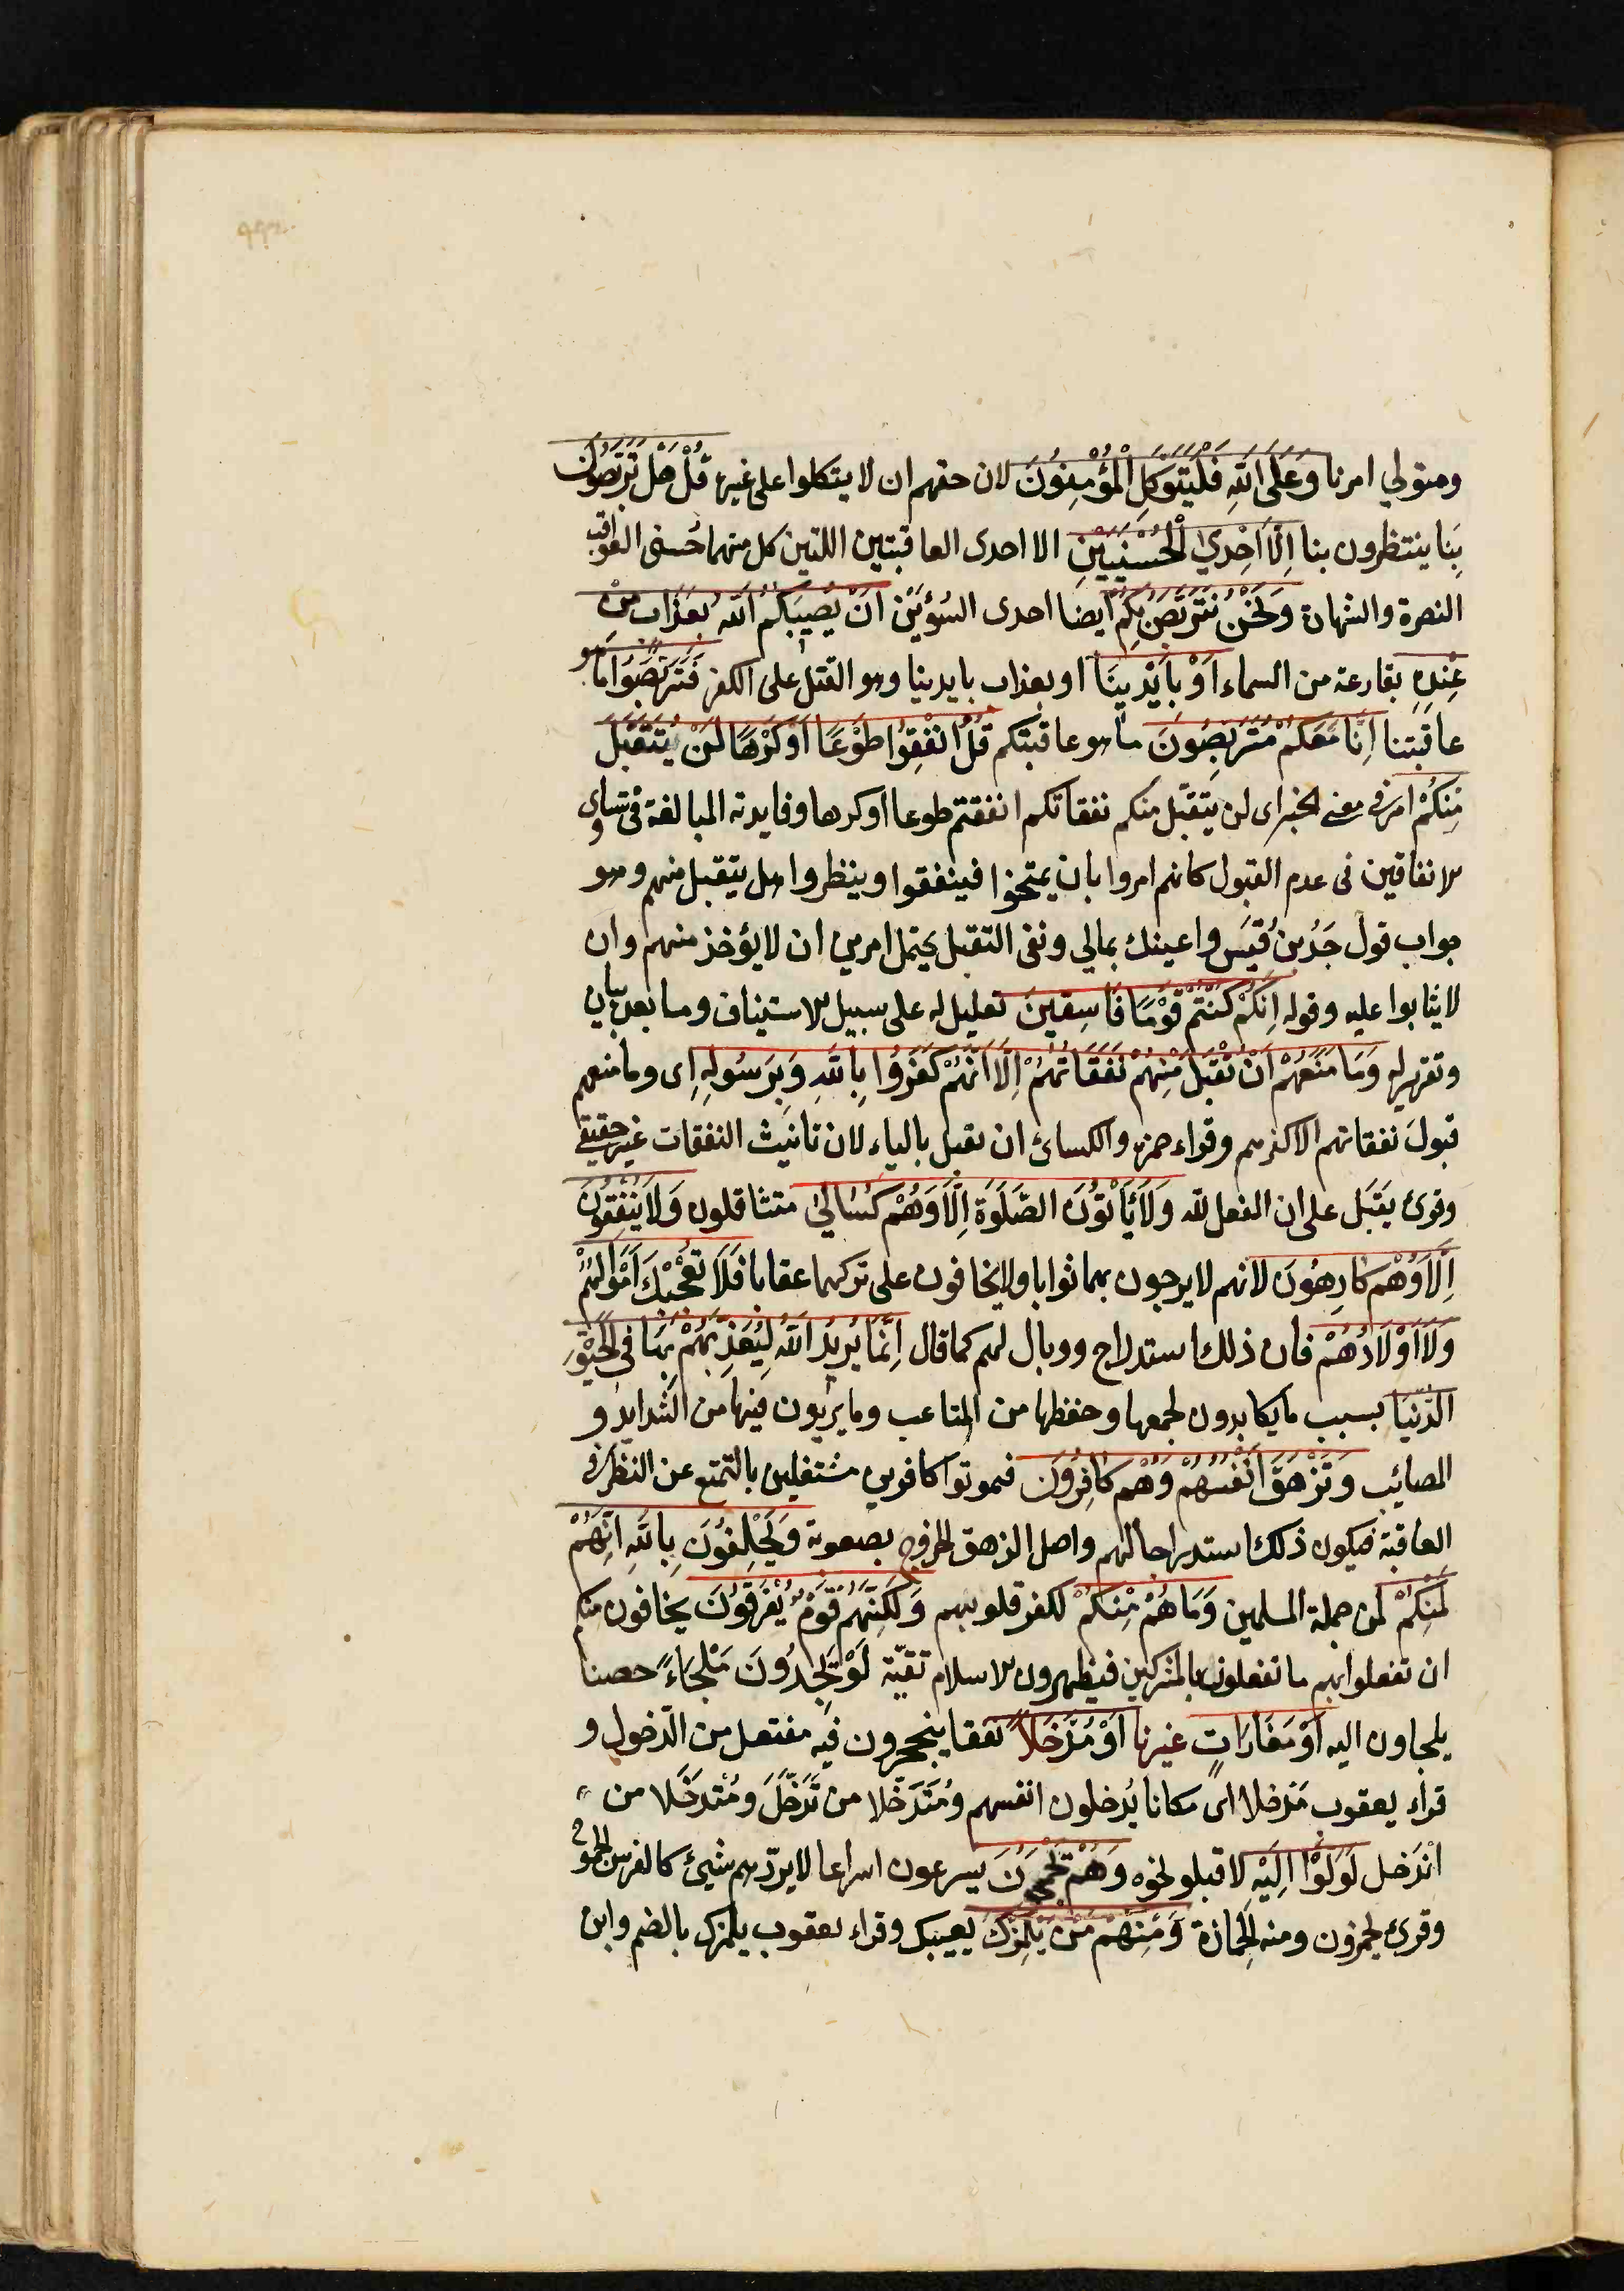 ومتولي امرنا وَعَلَى اللّٰهِ فَلْيَتَوَكَّلِ الْمُؤْمِنُونَ لان حقهم ان لا يتكلوا على غيره قُلْ هَلْ تَرَبَّصُونَ
بِنَا ينتظرون بنا اِلَّا اِحْدَي الْحُسْنَيَيْنِ الا احدى العاقبتين اللتين كل منهما حُسنى العواقب
النصرة والشهادة وَنَحْنُ نَتَرَبَّصُ بِكُمْ ايضا احدى السُوْئَيَيْن اَنْ يُصِيبَكُمُ اللّٰهُ بِعَذَابٍ مِنْ
عِنْدِهِ بقارعة من السماء اَوْ بِاَيْدِينَا او بعذاب بايدينا وهو القتل على الكفر فَتَرَبَّصُوا ما هو
عاقبتنا اِنَّا مَعَكُمْ مُتَرَبِّصُونَ ما هو عاقبتكم قُلْ اَنْفِقُوا طَوْعًا اَوْ كَرْهًا لَنْ يُتَقَبَّلَ
مِنْكُمْ امر في معنى الخبر اى لن يتقبّل منكم نفقاتكم انفقتم طوعا او كرها وفايدته المبالغة فى تساوى
الانفاقين فى عدم القبول كانهم امروا بان يمتحنوا فينفقوا وينظروا هل يتقبل منهم وهو
جواب قول جَدُ بنُ قَيْس واعينك بمالي ونفى التقبل يحتمل امرين ان لا يؤخذ منهم وان
لا يثابوا عليه وقوله اِنَّكُمْ كُنْتُمْ قَوْمًا فَاسِقِينَ تعليل له على سبيل الاستيناف وما بعده بيان
وتقرير له وَمَا مَنَعَهُمْ اَنْ تُقْبَلَ مِنْهُمْ نَفَقَاتُهُمْ اِلَّا اَنَّهُمْ كَفَرُوا بِاللّٰهِ وَبِرَسُولِهِ اى وما منعهم
قبولَ نفقاتهم الا كفرهم وقراء حمزة والكسائ ان يقبل بالياء لان تانيث النفقات غير حقيقي
وقرئ يَقْبَل على ان الفعل للّه وَلَا يَاْتُونَ الصَّلَوٰةَ اِلَّا وَهُمْ كُسَالَىٰ متثاقلون وَلَا يُنْفِقُونَ
اِلَّا وَهُمْ كَارِهُونَ لانهم لا يرجون بهما ثوابا ولا يخافون على تركهما عقابا فَلَا تُعْجِبْكَ اَمْوَالُهُمْ
وَلَا اَوْلَادُهُمْ فان ذلك استدراج ووبال لهم كما قال اِنَّمَا يُرِيدُ اللّٰهُ لِيُعَذِّبَهُمْ بِهَا فِى الْحَيٰوةِ
الدُّنْيَا بسبب ما يكابدون لجمعها وحفظها من المتاعب وما يريون فيها من الشدايد و
المصائب وَتَزْهَقَ اَنْفُسُهُمْ وَهُمْ كَافِرُونَ فيموتوا كافرين مشتغلين بالتمتع عن النظر في
العاقبة فيكون ذلك استدراجا لهم واصل الزهق الخروج بصعوبة وَيَحْلِفُونَ بِاللّٰهِ اِنَّهُمْ
لَمِنْكُمْ لمن جملة المسلمين وَمَا هُمْ مِنْكُمْ لكفر قلوبهم وَلٰكِنَّهُمْ قَوْمٌ يَفْرَقُونَ يخافون منكم
ان تفعلوا بهم ما تفعلون بالمشركين فيظهرون الاسلام تقيّة لَوْ يَجِدُونَ مَلْجَاءً حصنا
يلجاون اليه اَوْ مَغَارَاتٍ غيرنا اَوْ مُدَّخَلًا نفقا ينجحرون فيه مفتعل من الدّخول و
قراء يعقوب مَدْخلا اى مكانا يُدخلون انفسهم ومُتَدَخّلا من تَدَخّلَ ومُنْدخَلا من
انْدَخل لَوَلَّوْا اِلَيْهِ لاقبلو نحوه وَهُمْ يَجْمَحُونَ يسرعون اسراعا لا يردّهم شيئ كالفرس الجموح
وقرئ يجمزون ومنه الجمازة وَمِنْهُمْ مَنْ يَلْمِزُكَ يعيبك وقراء يعقوب يلمزك بالضم وابن